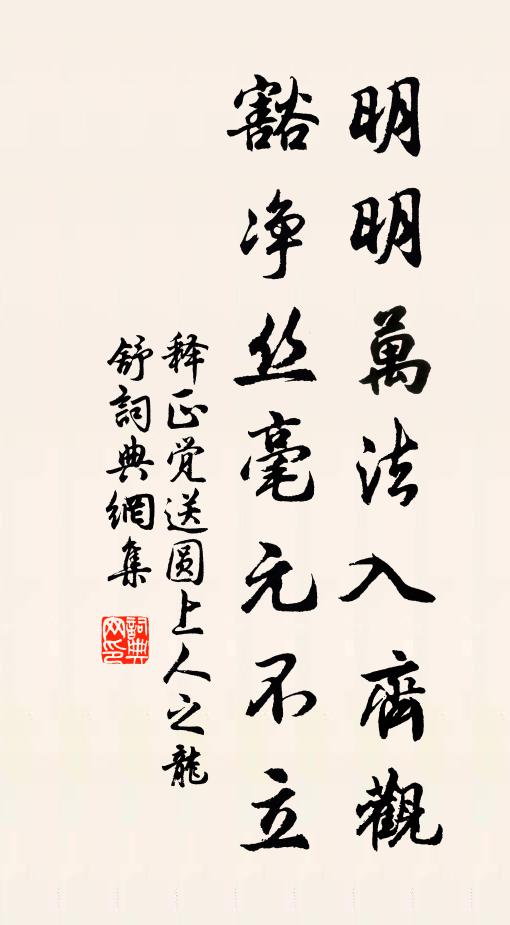 明明萬法入齊觀
豁净丝毫元不立
释正觉送圆上人之龍
舒詞典網集
詞典网印